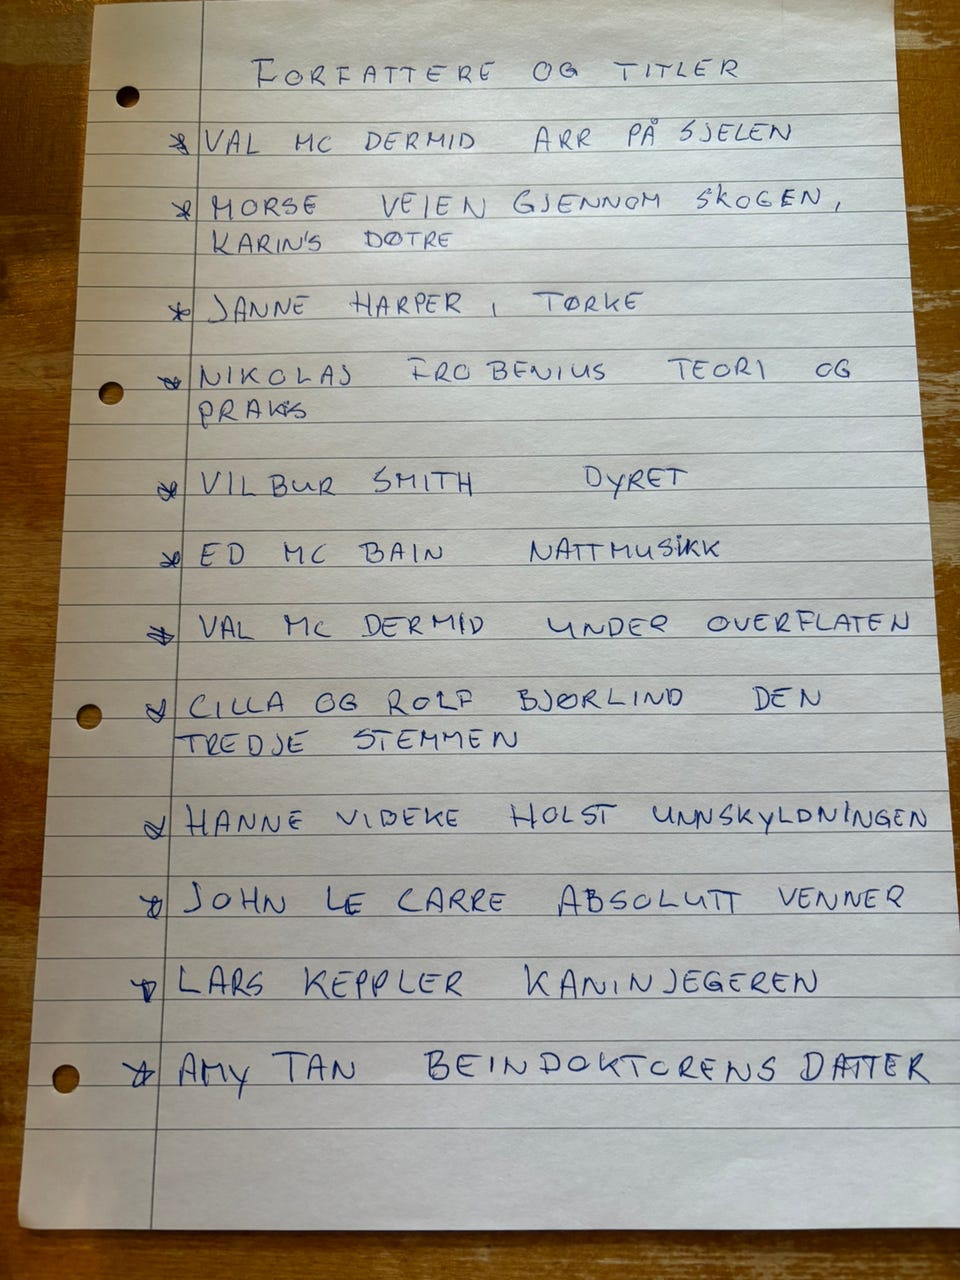 FORFATTERE OG TITLER
* VAL MC DERMID ARR PÅ SJELEN
* MORSE VEIEN GJENNOM SKOGEN,
KARIN'S DØTRE
* JANNE HARPER, TØRKE
* NIKOLAJ FROBENIUS TEORI OG
PRAKIS
* VILBUR SMITH DYRET
* ED MC BAIN NATTMUSIKK
* VAL MC DERMID UNDER OVERFLATEN
* CILLA OG ROLF BJØRLIND DEN
TREDJE STEMMEN
* HANNE VIDEKE HOLST UNNSKYLDNINGEN
* JOHN LE CARRE ABSOLUTT VENNER
* LARS KEPPLER KANINJEGEREN
* AMY TAN BEINDOKTORENS DATTER